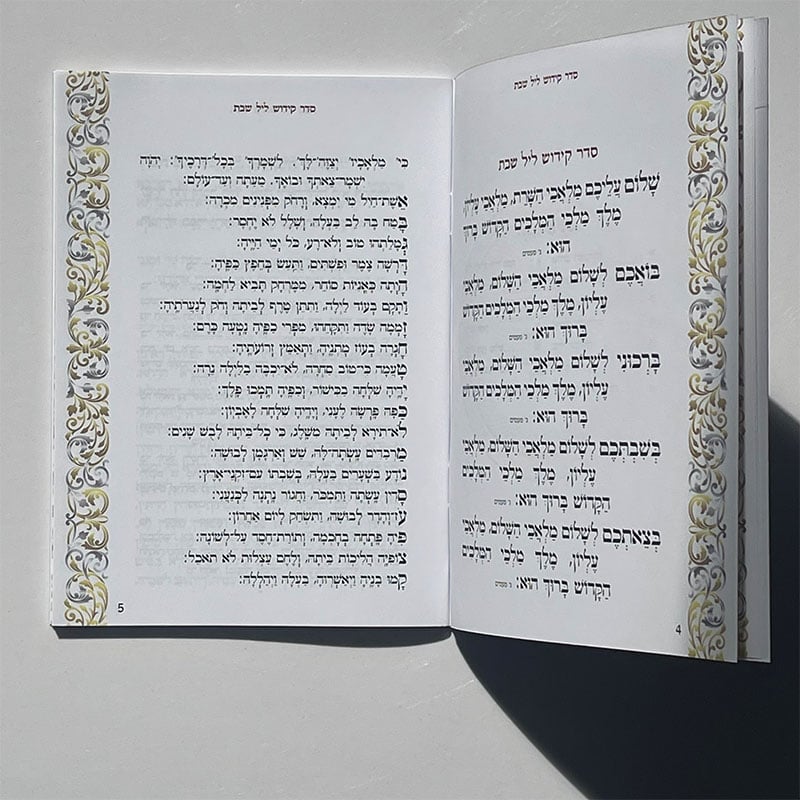 סדר קידוש ליל שבת
סדר קידוש ליל שבת
שָׁלוֹם עֲלֵיכֶם מַלְאֲכֵי הַשָּׁרֵת, מַלְאֲכֵי עֶלְיוֹן,
מֶלֶךְ מַלְכֵי הַמְּלָכִים הַקָּדוֹשׁ בָּרוּךְ
הוּא: ג' פעמים
בּוֹאֲכֶם לְשָׁלוֹם מַלְאֲכֵי הַשָּׁלוֹם, מַלְאֲכֵי
עֶלְיוֹן, מֶלֶךְ מַלְכֵי הַמְּלָכִים הַקָּדוֹשׁ
בָּרוּךְ הוּא: ג' פעמים
בָּרְכוּנִי לְשָׁלוֹם מַלְאֲכֵי הַשָּׁלוֹם, מַלְאֲכֵי
עֶלְיוֹן, מֶלֶךְ מַלְכֵי הַמְּלָכִים הַקָּדוֹשׁ
בָּרוּךְ הוּא: ג' פעמים
בְּשִׁבְתְּכֶם לְשָׁלוֹם מַלְאֲכֵי הַשָּׁלוֹם, מַלְאֲכֵי
עֶלְיוֹן, מֶלֶךְ מַלְכֵי הַמְּלָכִים
הַקָּדוֹשׁ בָּרוּךְ הוּא: ג' פעמים
בְּצֵאתְכֶם לְשָׁלוֹם מַלְאֲכֵי הַשָּׁלוֹם, מַלְאֲכֵי
עֶלְיוֹן, מֶלֶךְ מַלְכֵי הַמְּלָכִים
הַקָּדוֹשׁ בָּרוּךְ הוּא: ג' פעמים
4
סדר קידוש ליל שבת
כִּי מַלְאָכָיו יְצַוֶּה־לָּךְ, לִשְׁמָרְךָ בְּכָל־דְּרָכֶיךָ: יְהוָה
יִשְׁמָר־צֵאתְךָ וּבוֹאֶךָ, מֵעַתָּה וְעַד־עוֹלָם:
אֵשֶׁת־חַיִל מִי יִמְצָא, וְרָחֹק מִפְּנִינִים מִכְרָהּ:
בָּטַח בָּהּ לֵב בַּעְלָהּ, וְשָׁלָל לֹא יֶחְסָר:
גְּמָלַתְהוּ טוֹב וְלֹא־רָע, כֹּל יְמֵי חַיֶּיהָ:
דָּרְשָׁה צֶמֶר וּפִשְׁתִּים, וַתַּעַשׂ בְּחֵפֶץ כַּפֶּיהָ:
הָיְתָה כָּאֳנִיּוֹת סוֹחֵר, מִמֶּרְחָק תָּבִיא לַחְמָהּ:
וַתָּקָם בְּעוֹד לַיְלָה, וַתִּתֵּן טֶרֶף לְבֵיתָהּ וְחֹק לְנַעֲרֹתֶיהָ:
זָמְמָה שָׂדֶה וַתִּקָּחֵהוּ, מִפְּרִי כַפֶּיהָ נָטְעָה כָּרֶם:
חָגְרָה בְעוֹז מָתְנֶיהָ, וַתְּאַמֵּץ זְרוֹעֹתֶיהָ:
טָעֲמָה כִּי־טוֹב סַחְרָהּ, לֹא־יִכְבֶּה בַּלַּיְלָה נֵרָהּ:
יָדֶיהָ שִׁלְּחָה בַכִּישׁוֹר, וְכַפֶּיהָ תָּמְכוּ פָלֶךְ:
כַּפָּהּ פָּרְשָׂה לֶעָנִי, וְיָדֶיהָ שִׁלְּחָה לָאֶבְיוֹן:
לֹא־תִירָא לְבֵיתָהּ מִשָּׁלֶג, כִּי כָל־בֵּיתָהּ לָבֻשׁ שָׁנִים:
מַרְבַדִּים עָשְׂתָה־לָּהּ, שֵׁשׁ וְאַרְגָּמָן לְבוּשָׁהּ:
נוֹדָע בַּשְּׁעָרִים בַּעְלָהּ, בְּשִׁבְתּוֹ עִם־זִקְנֵי־אָרֶץ:
סָדִין עָשְׂתָה וַתִּמְכֹּר, וַחֲגוֹר נָתְנָה לַכְּנַעֲנִי:
עֹז־וְהָדָר לְבוּשָׁהּ, וַתִּשְׂחַק לְיוֹם אַחֲרוֹן:
פִּיהָ פָּתְחָה בְחָכְמָה, וְתוֹרַת־חֶסֶד עַל־לְשׁוֹנָהּ:
צוֹפִיָּה הֲלִיכוֹת בֵּיתָהּ, וְלֶחֶם עַצְלוּת לֹא תֹאכֵל:
קָמוּ בָנֶיהָ וַיְאַשְּׁרוּהָ, בַּעְלָהּ וַיְהַלְלָהּ:
5